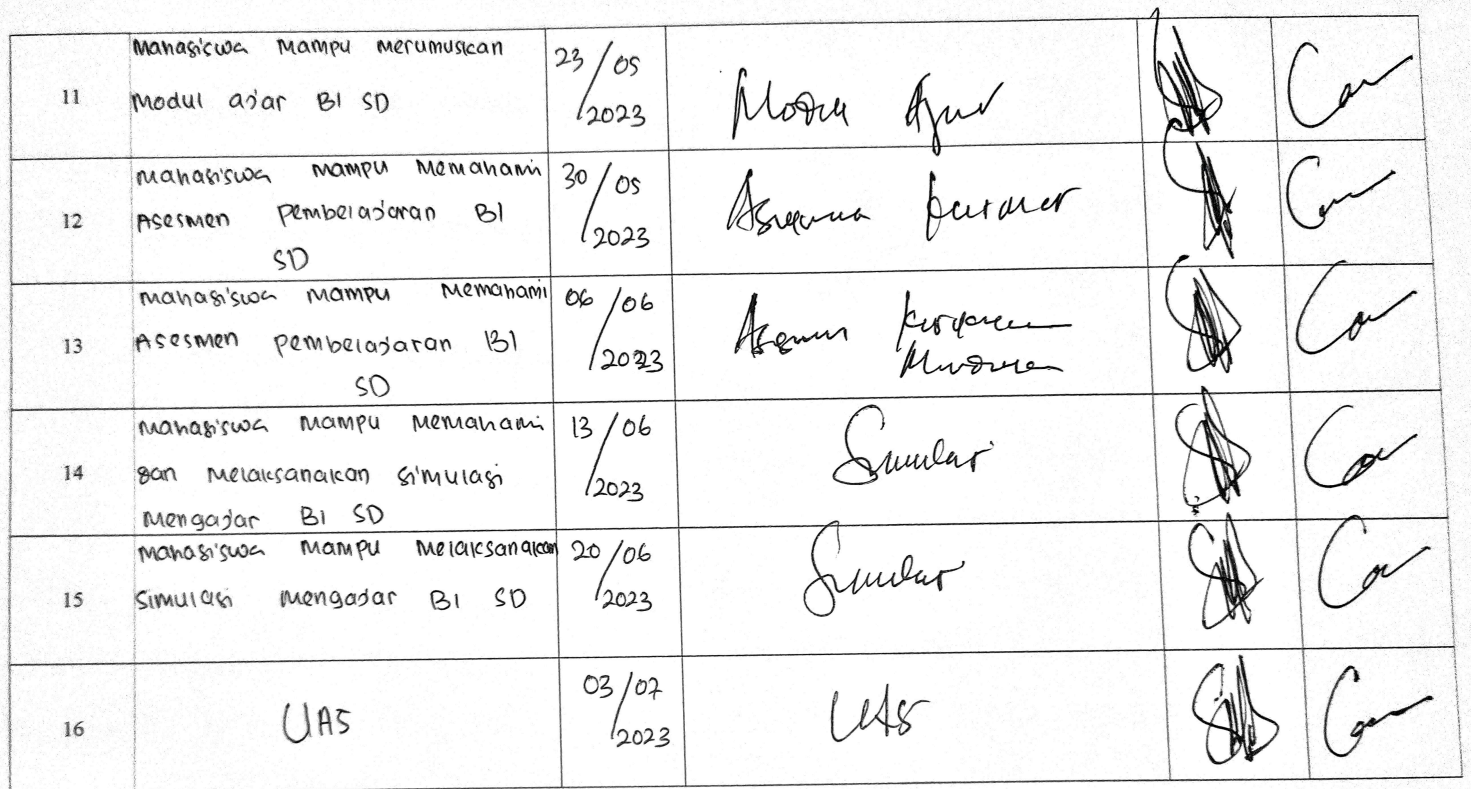 11
Mahasiswa Mampu Merumuskan
Modul ajar BI SD
23/05
/2023
Modul Ajar
12
Mahasiswa Mampu Memahami
Asesmen Pembelajaran BI
SD
30/05
/2023
13
Mahasiswa Mampu Memahami
Asesmen Pembelajaran BI
SD
06/06
/2023
14
Mahasiswa Mampu Memahami
dan Melaksanakan Simulasi
Mengajar BI SD
13/06
/2023
Simulasi
15
Mahasiswa Mampu Melaksanakan
Simulasi Mengajar BI SD
20/06
/2023
Simulasi
16
UAS
03/07
/2023
UAS